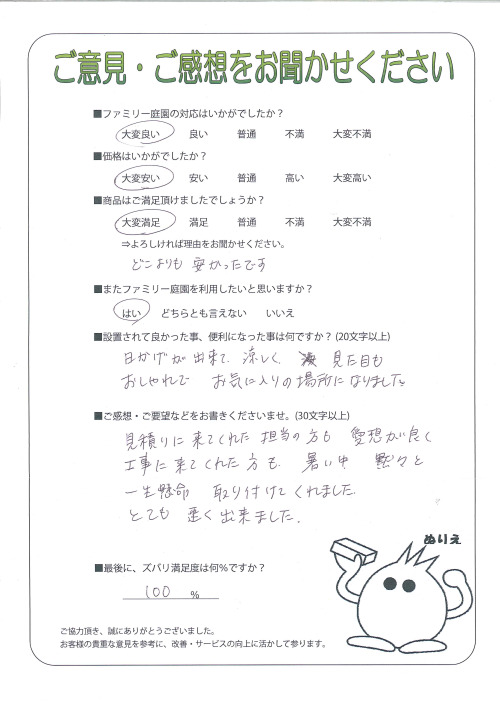 ご意見・ご感想をお聞かせください
■ファミリー庭園の対応はいかがでしたか？
大変良い 良い 普通 不満 大変不満
■価格はいかがでしたか？
大変安い 安い 普通 高い 大変高い
■商品はご満足頂けましたでしょうか？
大変満足 満足 普通 不満 大変不満
⇒よろしければ理由をお聞かせください。
どこよりも 安かったです
■またファミリー庭園を利用したいと思いますか？
はい どちらとも言えない いいえ
■設置されて良かった事、便利になった事は何ですか？(20文字以上)
日かげが出来て、涼しく、見た目も
おしゃれで お気に入りの場所になりました。
■ご感想・ご要望などをお書きくださいませ。(30文字以上)
見積りに来てくれた 担当の方も 愛想が良く
工事に来てくれた方も 暑い中 黙々と
一生懸命 取り付けてくれました。
とても 速く出来ました。
ぬりえ
■最後に、ズバリ満足度は何%ですか？
100 %
ご協力頂き、誠にありがとうございました。
お客様の貴重な意見を参考に、改善・サービスの向上に活かして参ります。